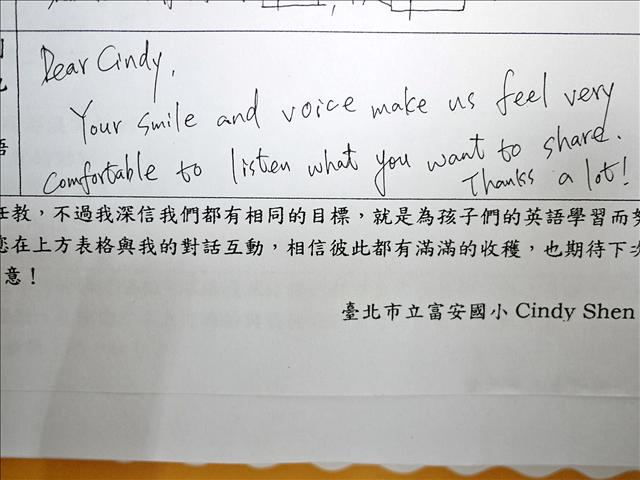 Dear Cindy,
Your smile and voice make us feel very
comfortable to listen what you want to share.
Thanks a lot!
語
任教，不過我深信我們都有相同的目標，就是為孩子們的英語學習而努
您在上方表格與我的對話互動，相信彼此都有滿滿的收穫，也期待下次
意！
臺北市立富安國小 Cindy Shen